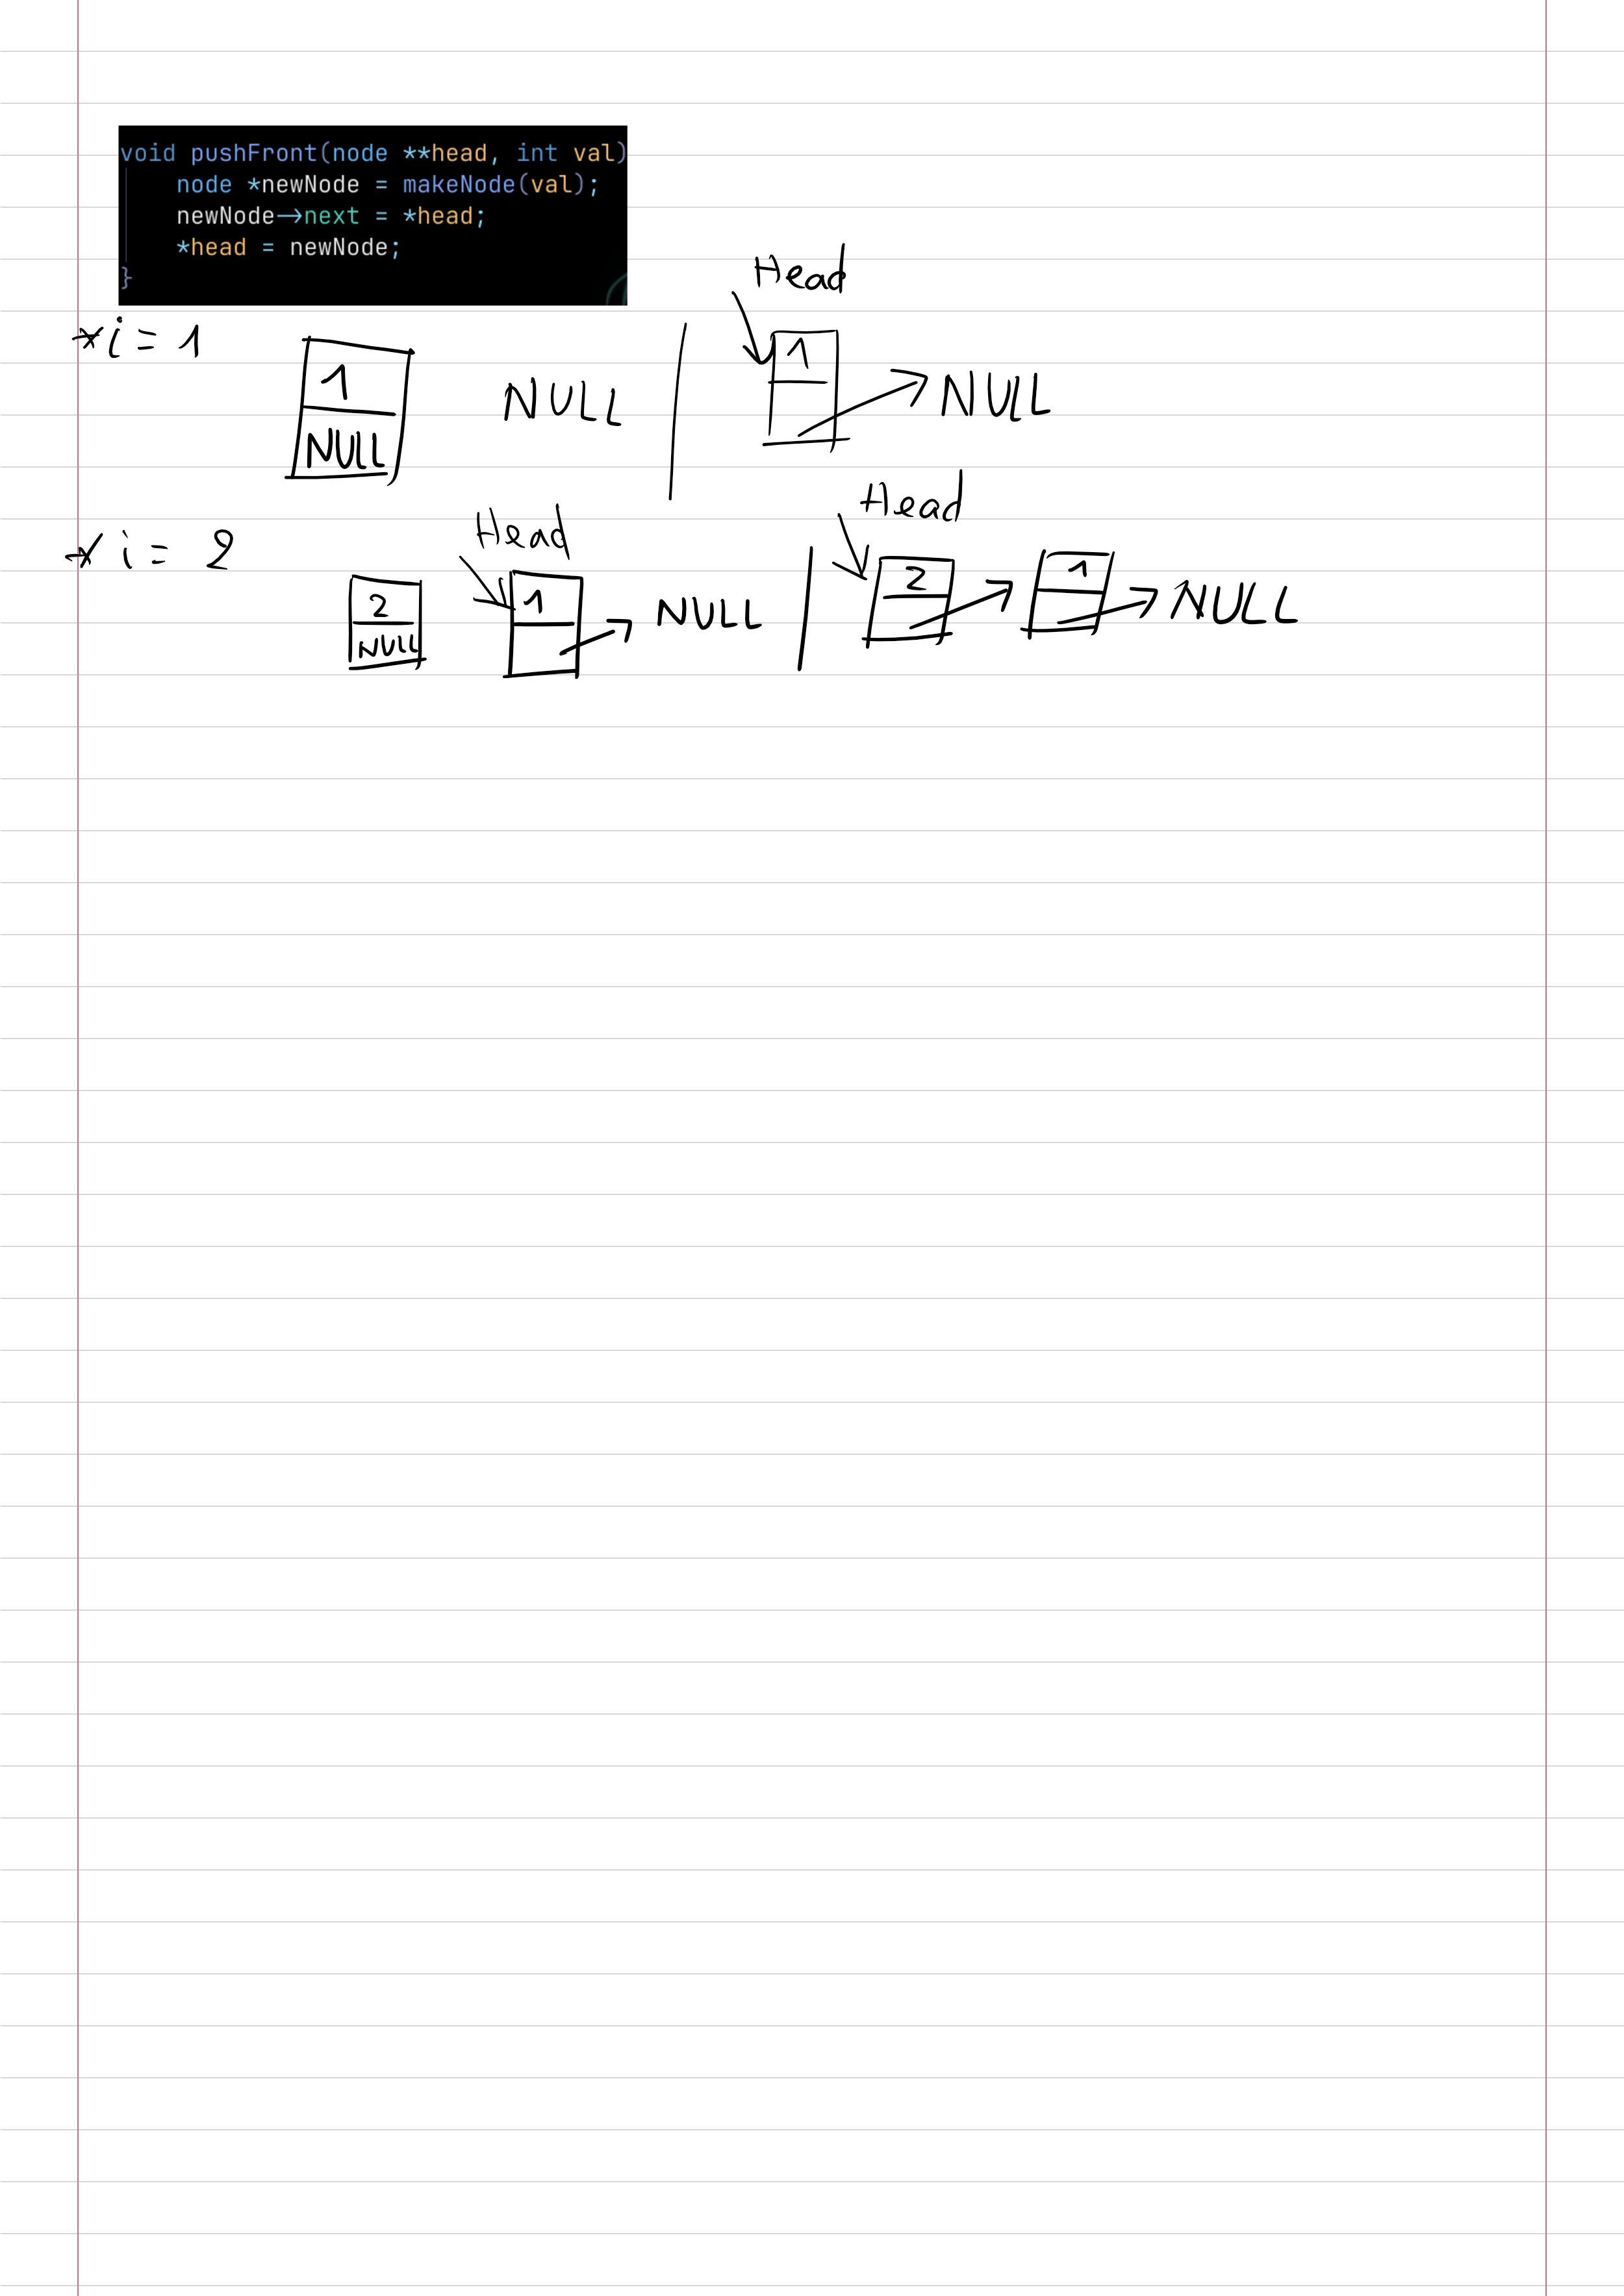 void pushFront(node **head, int val)
node *newNode = makeNode(val);
newNode->next = *head;
*head = newNode;
}
Head
* i = 1
1
NULL
NULL
1
NULL
* i = 2
Head
2
NULL
1
NULL
Head
2
1
NULL